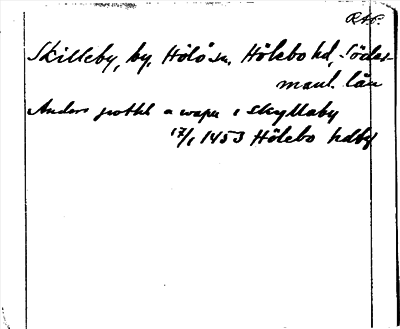 RAP.
Skilleby, by, Hölö sn, Hölebo hd, Söder-
manl. län
Anders a wapn i Skyllaby
17/1 1453 Hölebo hdbf